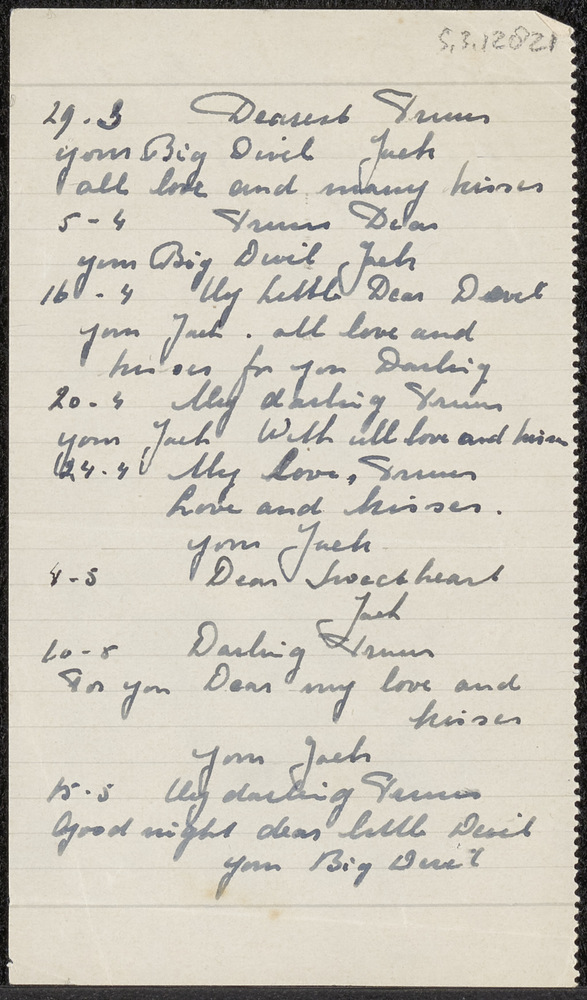 S.3.12821
29.3 Dearest Truus
your Big Divel Jack
all love and many kisses
5-4 Truus Dear
your Big Devil Jack
16-4 My Little Dear Devel
your Jack. all love and
kisses for you Darling
20-4 My darling Truus
your Jack With all love and kisses
24-4 My Love, Truus
Love and kisses.
your Jack
4-5 Dear Sweetheart
Jack
10-5 Darling Truus
For you Dear my love and
kisses
your Jack
15-5 My darling Truus
Good night dear little Devil
your Big Devil